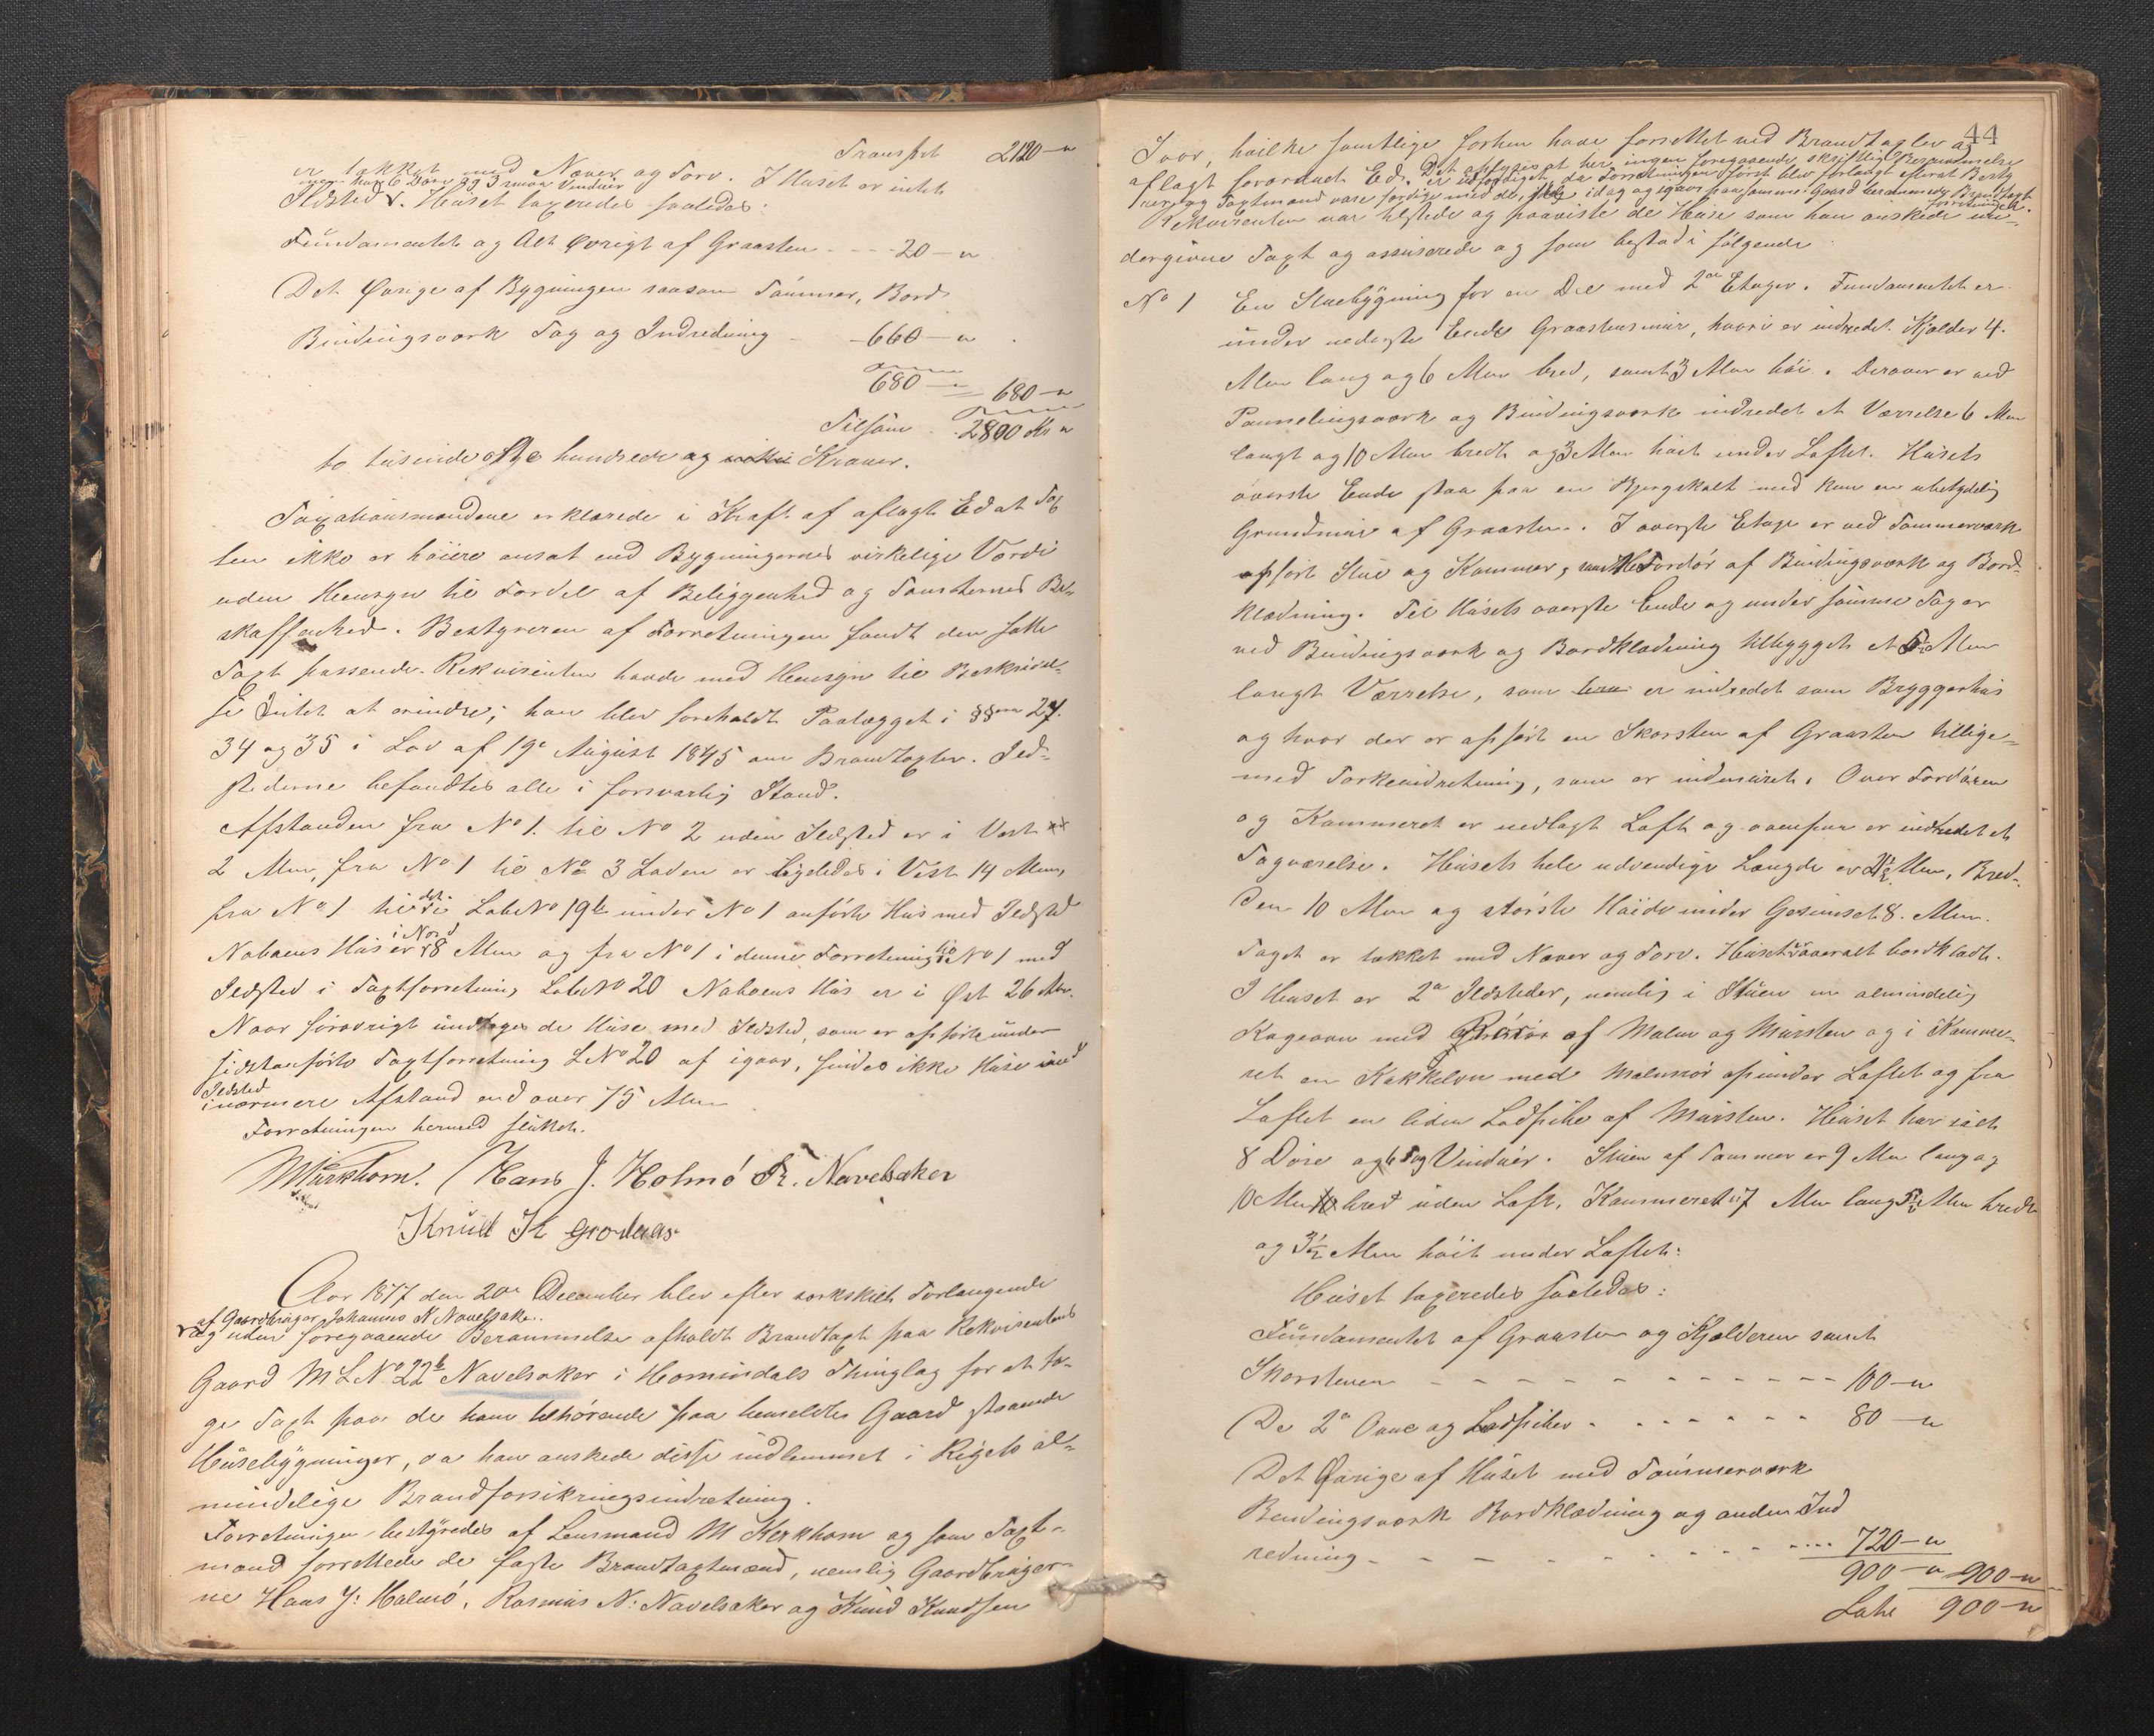 Transpt 2120 — "
er tækket med Næver og Torv. I Huset er intet
men har 6 Døre og 3 smaa Vinduer
Ildsted. Huset taxeredes saaledes:
Fundamentet og Alt øvrigt af Graasten - - - 20 — "
Det Øvrige af Bygningen saasom Tømmer, Bord
Bindingsværk Tag og Indredning - 660 — "
680 — " 680 — "
Tilsam 2800 Kr "
to tusinde otte hundrede og Kroner.
Taxationsmændene erklærede i Kraft af aflagt Ed at Tax
ten ikke er høiere ansat end Bygningernes virkelige Værdi
uden Hensyn til Fordel af Beliggenhed og Tomternes Be-
skaffenhed. Bestyreren af Forretningen fandt den satte
Taxt passende. Rekvirenten havde med Hensyn til Beskrivel-
se Intet at erindre; han blev foreholdt Paalægget i §§en 27.
34 og 35 i Lov af 19e August 1845 om Brandtaxter. Ild-
stederne befandtes alle i forsvarlig Stand.
Afstanden fra No 1. til No 2 uden Ildsted er i Vest
2 Alen, fra No 1 til No 3 Laden er ligeledes i Vest 14 Alen,
fra No 1 til det Løbe No 19b under No 1 anførte Hus med Ildsted
Naboens Hus er i Nord 8 Alen og fra No 1 i denne Forretning til No 1 med
Ildsted i Taxtforretning Løbe No 20 Naboens Hus er i Øst 26 Alen.
Naar forøvrigt undtages de Huse med Ildsted, som er opførte under
sidstanførte Taxtforretning L No 20 af igaar, findes ikke Huse med
Ildsted
i nærmere Afstand end over 75 Alen
Forretningen hermed sluttet.
MKirkhorn. Hans J. Holmø R. Navelsaker
Knud K Grodaas
Aar 1877 den 20de December blev efter særskilt Forlangende
af Gaardbruger Johannes N Navelsaker
og uden foregaaende Berammelse afholdt Brandtaxt paa Rekvirentens
Gaard M L No 22b Navelsaker i Hornindals Thinglag for at ta-
ge Taxt paa de ham tilhørende paa bemeldte Gaard staaende
Husebygninger, da han ønskede disse indlemmet i Rigets al-
mindelige Brandforsikringsindretning.
Forretningen bestyredes af Lensmand M Kirkhorn og som Taxt-
mænd forrettede de faste Brandtaxtmænd, nemlig Gaardbruger-
ne Hans J: Holmø, Rasmus N: Navelsaker og Knud Knudsen
44
Ivar, hvilke samtlige forhen have forrettet ved Brandtaxter og
aflagt forordnet Ed. Det oplyses at her ingen foregaaende skriftlig Berammelse
er udfærdiget, da Forretningen først blev forlangt efterat Besty
rer og Taxtmænd vare færdige med de, idag og igaar paa samme Gaard berammede Brandtaxt-
forretninger.
Rekvirenten var tilstede og paaviste de Huse som han ønskede un-
dergivne Taxt og assurerede og som bestod i følgende:
No 1 En Stuebygning for en Del med 2de Etager. Fundamentet er
under nederste Ende Graastensmur, hvori er indredet Kjælder 4.
Alen lang og 6 Alen bred, samt 3 Alen høi. Derover er ved
Pannelingsværk og Bindingsværk indredet et Værrelse 6 Alen
langt og 10 Alen bredt og 3 Alen høit under Loftet. Husets
øverste Ende staar paa en Bjergskalt med kun en ubetydelig
Grundmur af Graasten. I øverste Etage er ved Tømmerværk
opført Stue og Kammer, samt Fordør af Bindingsværk og Bord-
klædning. Til Husets øverste Ende og under samme Tag er
ved Bindingsværk og Bordklædning tilbygget et 5½ Alen
langt Værrelse, som er indredet som Bryggerhus
og hvor der er opført en Skorsten af Graasten tillige-
med Tørkeindretning, som er indmuret. Over Fordøren
og Kammeret er nedlagt Loft og ovenpaa er indredet et
Tagværelse. Husets hele udvendige Længde er 21½ Alen, Bred-
den 10 Alen og største Høide under Gesimset 8. Alen.
Taget er tækket med Næver og Torv. Huset er overalt bordklædt.
I Huset er 2de Ildsteder, nemlig i Stuen en almindelig
Kogeovn med Rør af Malm og Mursten og i Kamme-
ret en Kakkelovn med Malmrør op under Loftet og fra
Loftet en liden Lodpibe af Mursten. Huset har ialt
8 Døre og 6 Fag Vinduer. Stuen af Tømmer er 9 Alen lang og
10 Alen bred uden Loft, Kammeret 7 Alen langt 5½ Alen bredt
og 3½ Alen høit under Loftet:
Huset taxeredes saaledes:
Fundamentet af Graasten og Kjælderen samt
Skorstenen - - - - - - - - - - - - 100 — "
De 2de Ovne og Lodpiber - - - - - - - 80 — "
Det Øvrige af Huset med Tømmerværk
Bindingsværk Bordklædning og anden Ind
redning - - - - - - - - - 720 — "
900 — " 900 — "
Late 900 — "